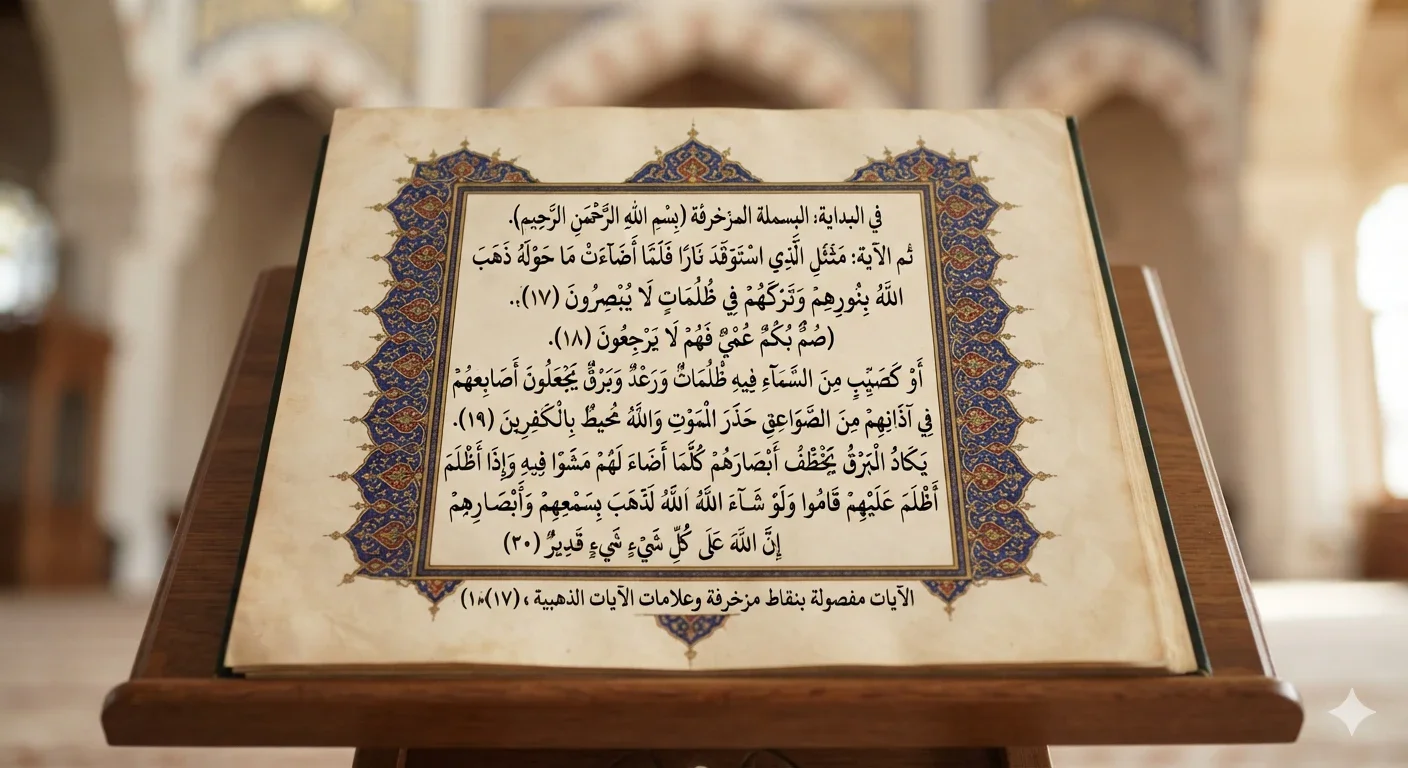 في البداية: البسملة المزخرفة (بِسْمِ اللهِ الرَّحْمَنِ الرَّحِيمِ).
ثم الآية: مَثَئَلِ الَّذِي اسْتَوْقَدَ نَارًا فَلَمَّا أَضَآءَتْ مَا حَوْلَهُ ذَهَبَ
اللَّهُ بِنُورِهِمْ وَتَرَكَهُمْ فِي ظُلُمَاتٍ لَا يُبْصِرُونَ (١٧).
(صُمٌّ بُكْمٌ عُمْيٌ فَهُمْ لَا يَرْجِعُونَ (١٨).
أَوْ كَصَيِّبٍ مِنَ السَّمَآءِ فِيهِ ظُلُمَاتٌ وَرَعْدٌ وَبَرْقٌ يَجْعَلُونَ أَصَابِعَهُمْ
فِي آذَانِهِمْ مِنَ الصَّوَاعِقِ حَذَرَ الْمَوْتِ وَاللَّهُ مُحِيطٌ بِالْكَفِرِينَ (١٩).
يَكَادُ الْبَرْقُ يَخْطَفُ أَبْصَارَهُمْ كُلَّمَا أَضَاءَ لَهُمْ مَشَوْا فِيهِ وَإِذَا أَظْلَمَ
أَظْلَمَ عَلَيْهِمْ قَامُوا وَلَوْ شَآءَ اللَّهُ اللَّهُ لَذَهَبَ بِسَمْعِهِمْ وَأَبْصَارِهِمْ
إِنَّ اللَّهَ عَلَى كُلِّ شَيْءٍ شَيءٍ قَدِيرٌ (٢٠)
الآيات مفصولة بنقاط مزخرفة وعلامات الآيات الذهبية ، (١٧)